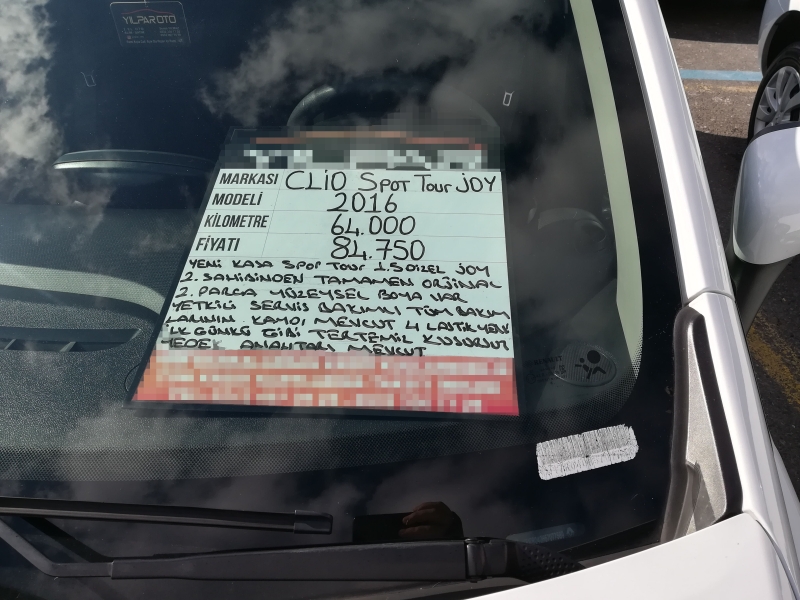 YILPAR OTO
MARKASI CLIO SPOT TOUR JOY
MODELİ 2016
KİLOMETRE 64.000
FİYATI 84.750
YENİ KASA SPOT TOUR 1.5 DİZEL JOY
2. SAHİBİNDEN TAMAMEN ORJİNAL
2. PARÇA YÜZEYSEL BOYA VAR
YETKİLİ SERVİS BAKIMLI TÜM BAKIM
LARININ KAYDI MEVCUT 4 LASTİK YENİ
İLK GÜNKÜ GİBİ TERTEMİZ KUSURSUZ
YEDEK ANAHTARI MEVCUT